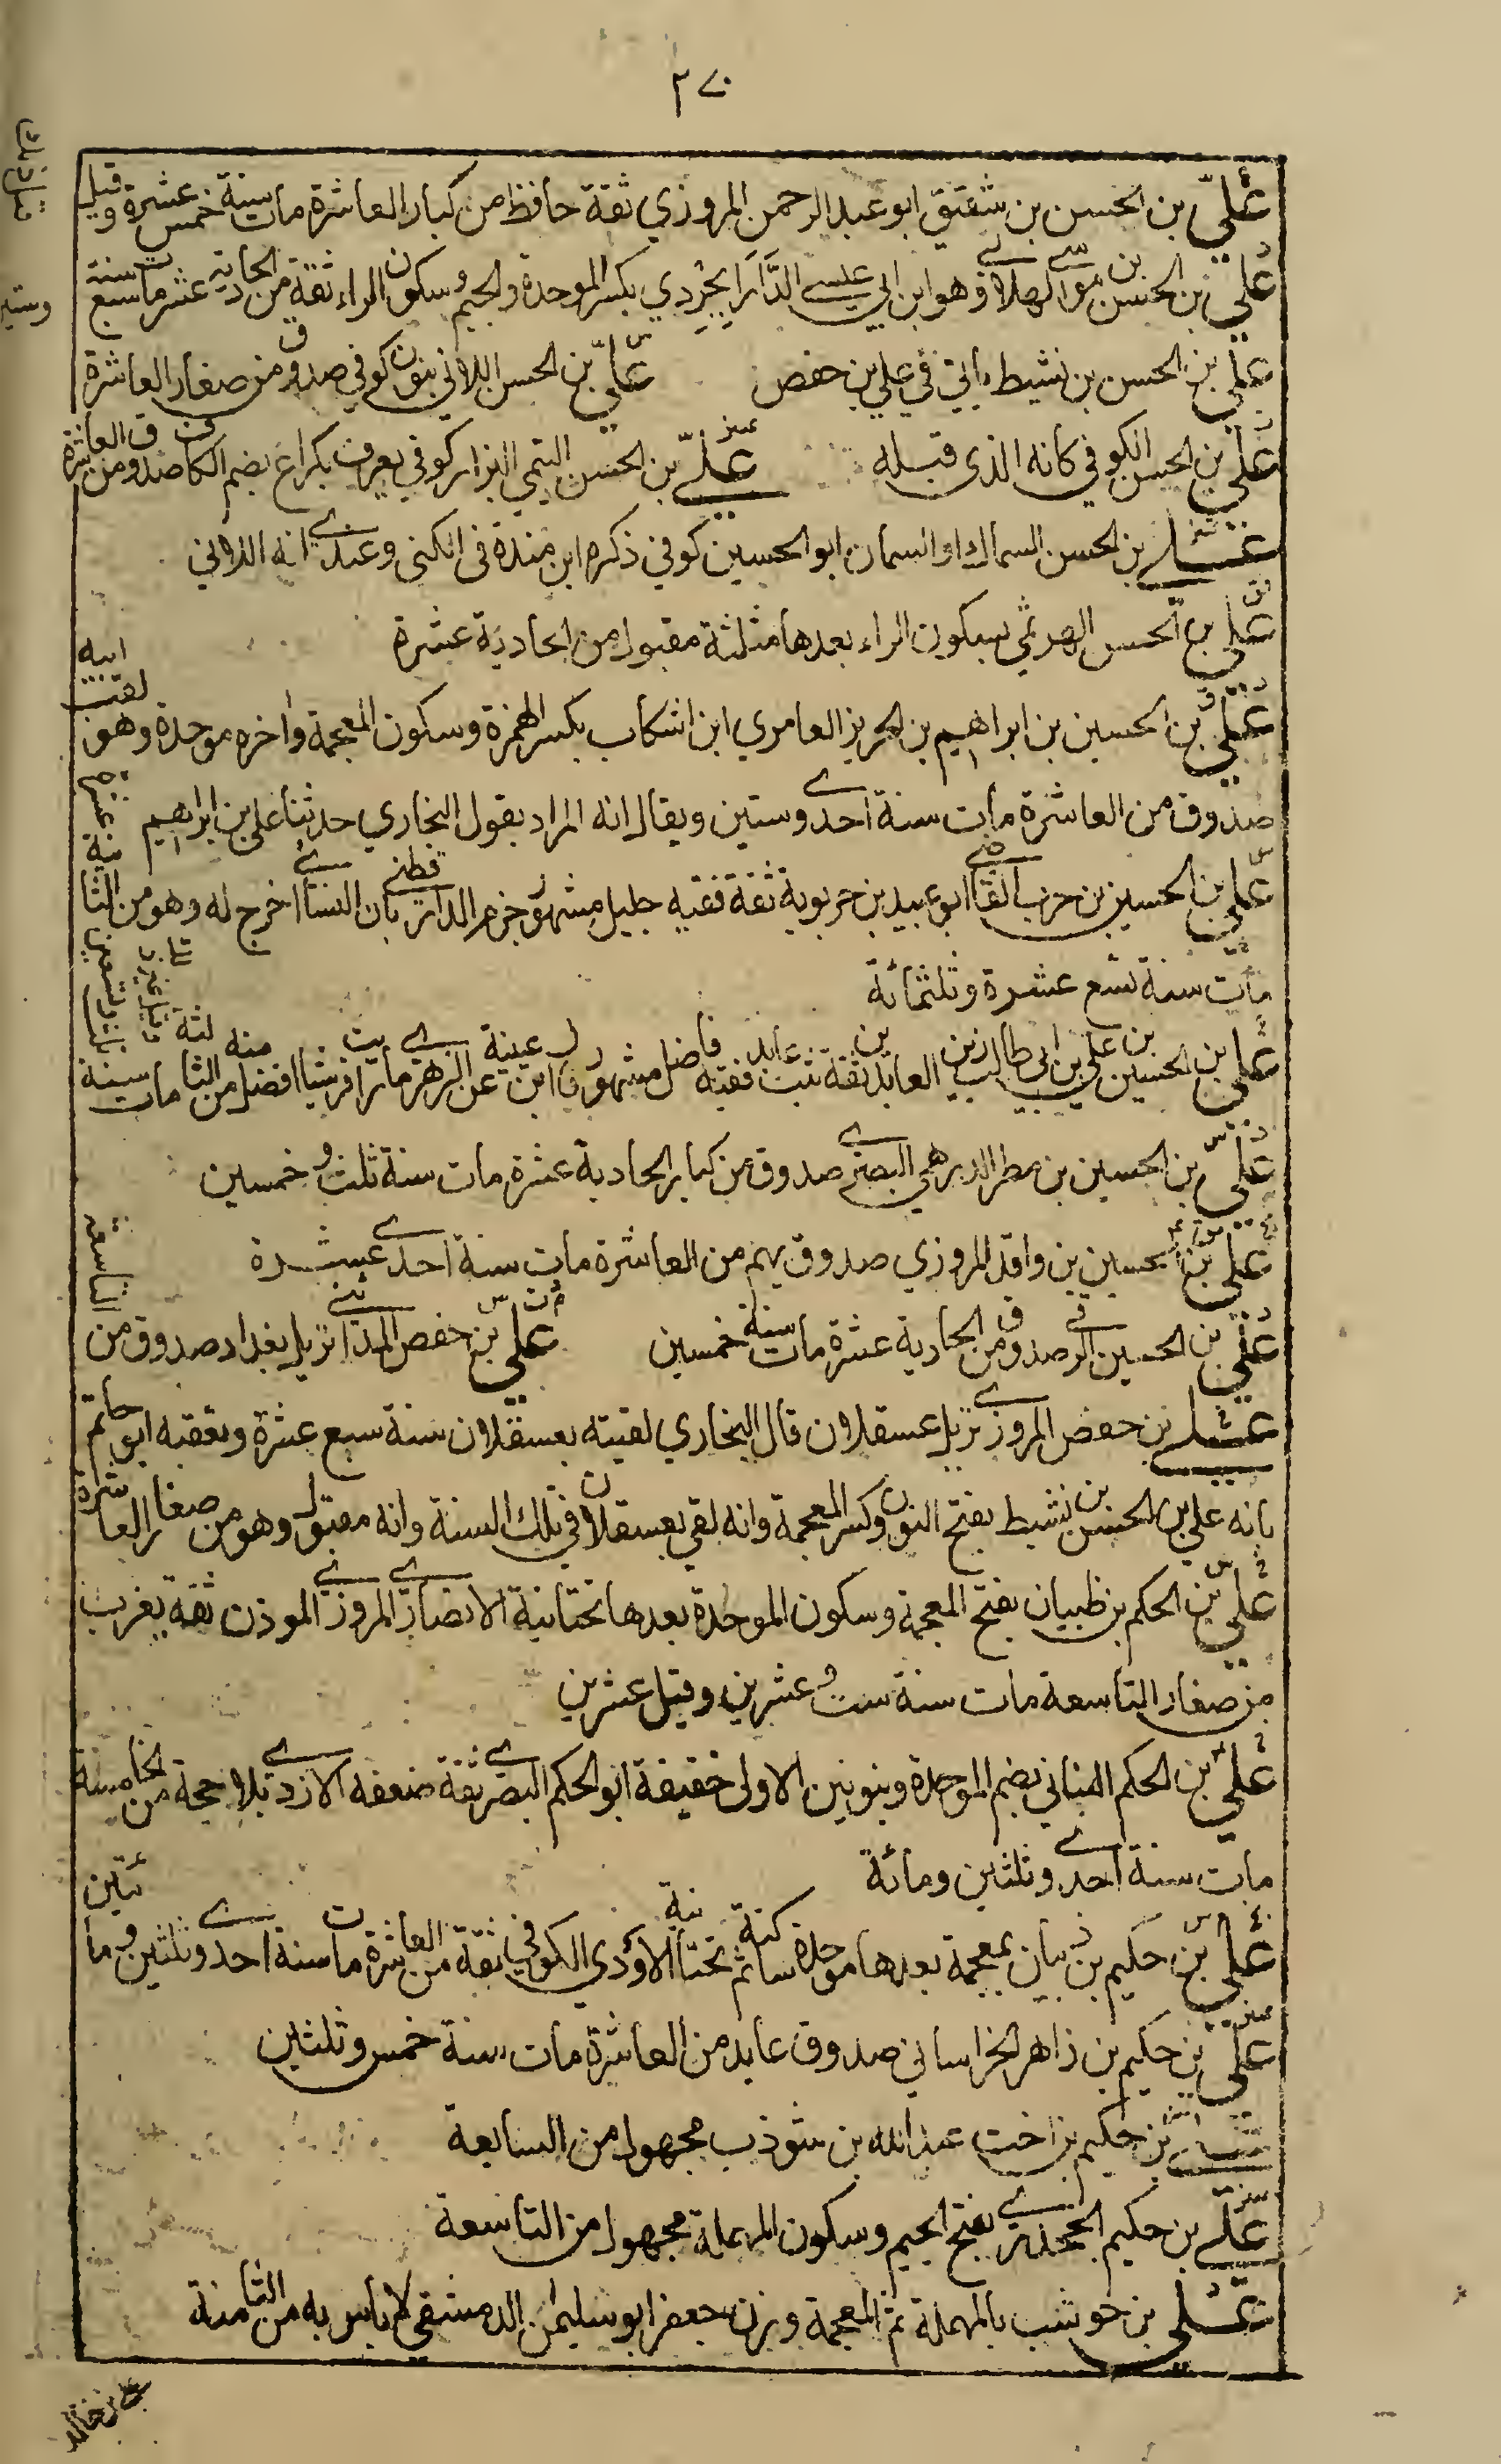 ٢٧٠
علي بن الحسن بن شقيق ابو عبد الرحمن المروزي ثقة حافظ من كبار العاشرة مات سنة خمس عشرة وقيل
علي بن الحسن بن موسى الهلالي وهو ابن ابي عيسى الدَّارَابجِردي بكسر الموحدة والجيم وسكون الراء ثقة من الحادية عشر مات سنة سبع وستين
علي بن الحسن بن نشيط ياتي في علي بن حفص علي بن الحسن اللاني بنون كوفي صدوق من صغار العاشرة
علي بن الحسن الكوفي كانه الذى قبله علي بن الحسن التيمي البزار كوفي يعرف بكراع بضم الكاف صدوق من العاشرة
علي بن الحسن السماك او السمان ابو الحسين كوفي ذكره ابن مندة في الكنى وعندي انه اللاني
علي بن الحسن الهرثمي بسكون الراء بعدها مثلثة مقبول من الحادية عشرة
علي بن الحسين بن ابراهيم بن الحريز العامري ابن اشكاب بكسر الهمزة وسكون المعجمة واخره موحدة وهو لقب ابيه
صدوق من العاشرة مات سنة احدى وستين ويقال انه المراد بقول البخاري حدثنا علي بن ابراهيم
علي بن الحسين بن حرب القاضي ابو عبيد بن حربوية ثقة فقيه جليل مشهور جزم الدارقطني بان النسائي اخرج له وهو من الثانية عشرة
مات سنة تسع عشرة وثلثمائة
علي بن الحسين بن علي بن ابي طالب زين العابدين ثقة ثبت عابد فقيه فاضل مشهور قال ابن عيينة عن الزهري ما رايت قرشيا افضل منه من الثالثة مات سنة
ثلث وتسعين وقيل غير ذلك
علي بن الحسين بن مطر الدرهمي البصري صدوق من كبار الحادية عشرة مات سنة ثلث وخمسين
علي بن الحسين بن واقد المروزي صدوق يهم من العاشرة مات سنة احدى عشرة
علي بن الحسين الرقي صدوق من الحادية عشرة مات سنة خمسين علي بن حفص المدائني نزيل بغداد صدوق من التاسعة
علي بن حفص المروزي نزيل عسقلان قال البخاري لقيته بعسقلان سنة سبع عشرة وتعقبه ابو حاتم
بانه علي بن الحسن بن نشيط بفتح النون وكسر المعجمة وانه لقي بعسقلان في تلك السنة وانه مقبول وهو من صغار العاشرة
علي بن الحكم بن ظبيان بفتح المعجمة وسكون الموحدة بعدها تحتانية الانصاري المروزي الموذن ثقة يغرب
من صغار التاسعة مات سنة ست وعشرين وقيل عشرين
علي بن الحكم البناني بضم الموحدة وبنونين الاولى خفيفة ابو الحكم البصري ثقة ضعفه الازدي بلا حجة من الخامسة
مات سنة احدى وثلثين ومائة
علي بن حكيم بن ذبيان بمعجمة بعدها موحدة ساكنة ثم تحتانية الاودي الكوفي ثقة من العاشرة مات سنة احدى وثلثين ومائتين
علي بن حكيم بن زاهر الخراساني صدوق عابد من العاشرة مات سنة خمس وثلثين
علي بن حكيم بن اخت عبد الله بن شوذب مجهول من السابعة
علي بن حكيم الجحدري بفتح الجيم وسكون المهملة مجهول من التاسعة
علي بن حوشب بالمهملة ثم المعجمة وزن جعفر ابو سليمن الدمشقي لا باس به من الثامنة
علي بن خالد